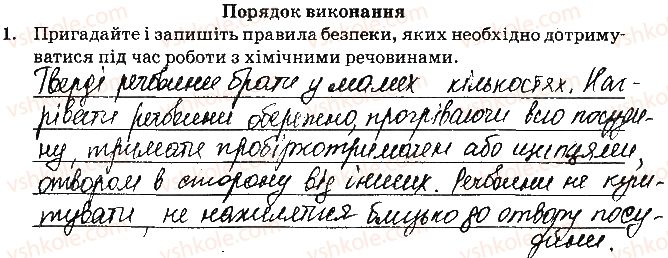 Порядок виконання
1. Пригадайте і запишіть правила безпеки, яких необхідно дотриму-
ватися під час роботи з хімічними речовинами.
Тверді речовини брати у малих кількостях. Наг-
рівати речовини обережно, прогріваючи всю посуди-
ну, тримати пробіркотримачем або щипцями,
отвором в сторону від інших. Речовини не куш-
тувати, не нахилятися близько до отвору посу-
дини.